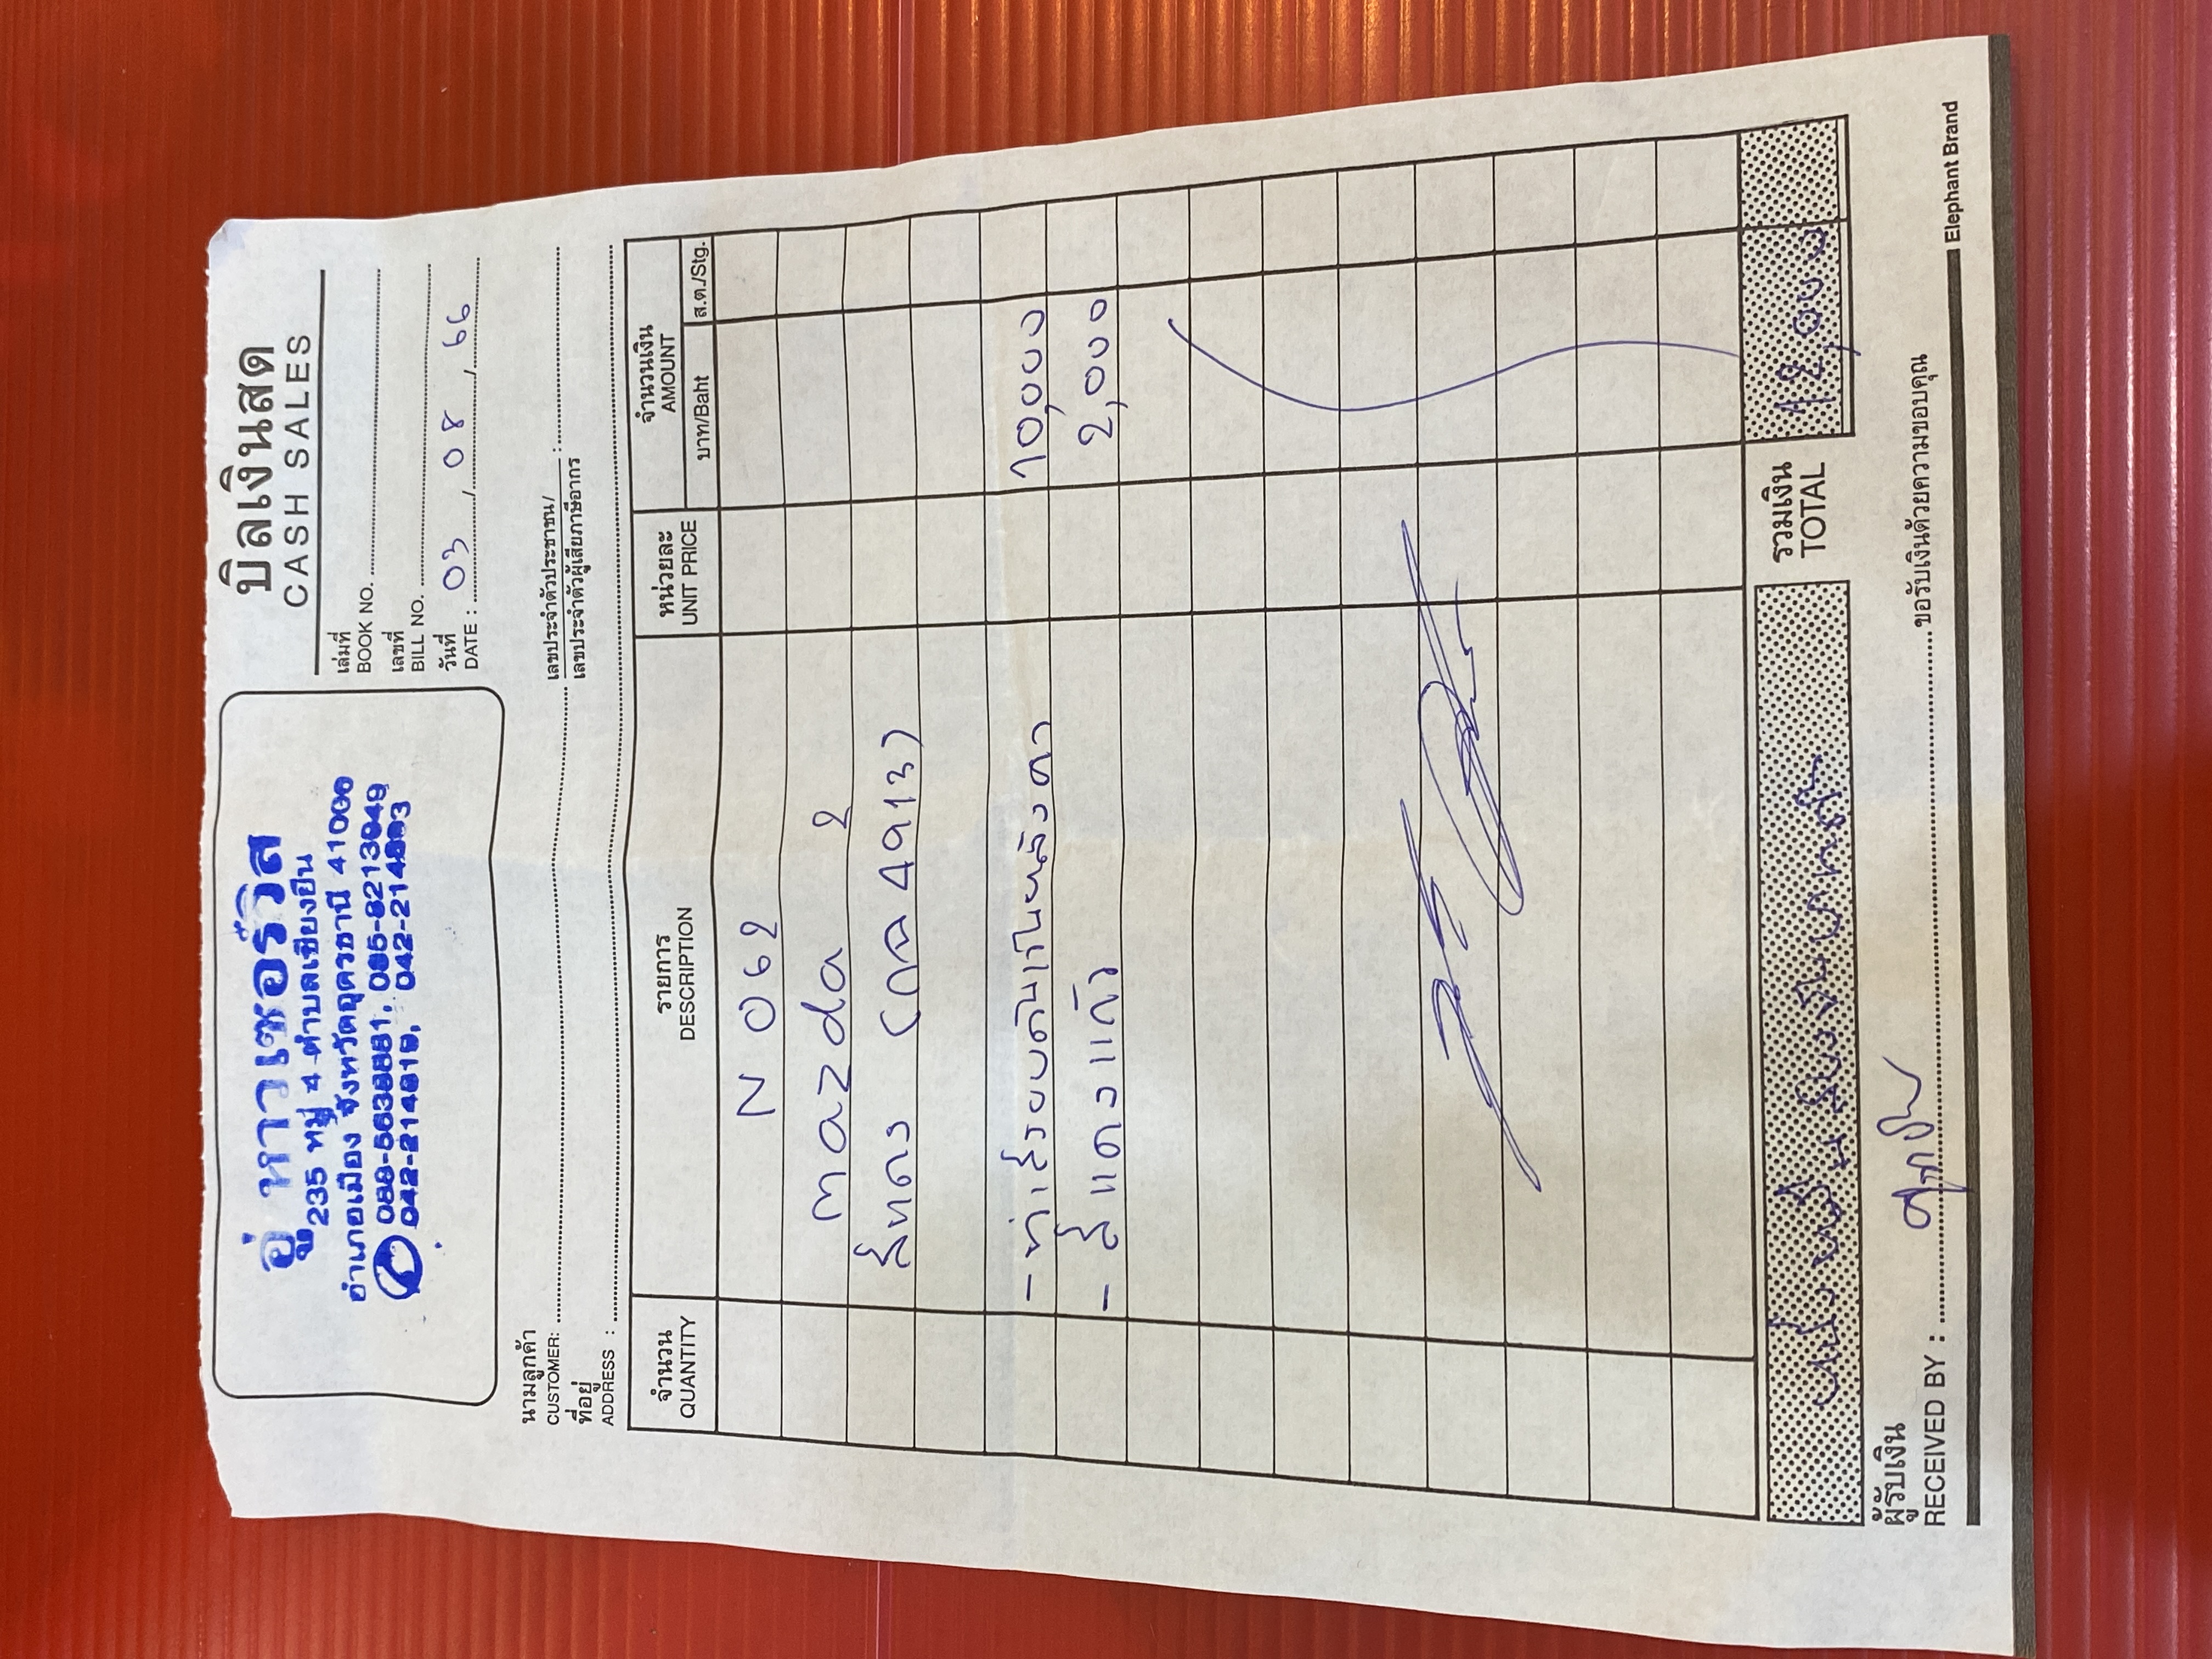 อู่ หาวเซอร์วิส
235 หมู่ 4 ตำบลเชียงยืน
อำเภอเมือง จังหวัดอุดรธานี 41000
042-214619,
บิลเงินสด
CASH SALES
เล่มที่
BOOK NO.
เลขที่
BILL NO.
วันที่
DATE : 03 / 08 / 66
นามลูกค้า
CUSTOMER:
เลขประจำตัวประชาชน/
เลขประจำตัวผู้เสียภาษีอากร :
ที่อยู่
ADDRESS :
จำนวน รายการ หน่วยละ จำนวนเงิน
QUANTITY DESCRIPTION UNIT PRICE AMOUNT
บาท/Baht ส.ต./Stg.
N 062
mazda 2
สีแดง (กฉ 4913)
- ทำสีรอบคันเว้นหลังคา 10,000
- สีแดงแก้ว 2,000
หนึ่งหมื่นสองพันบาทถ้วน รวมเงิน 12,000
TOTAL
ผู้รับเงิน
RECEIVED BY : ขอรับเงินด้วยความขอบคุณ
Elephant Brand